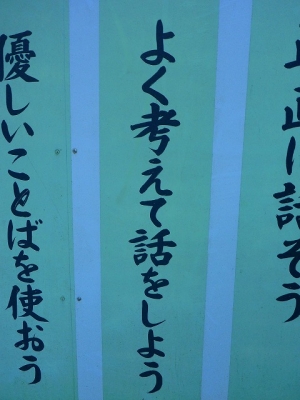 正しく話そう
よく考えて話をしよう
優しいことばを使おう